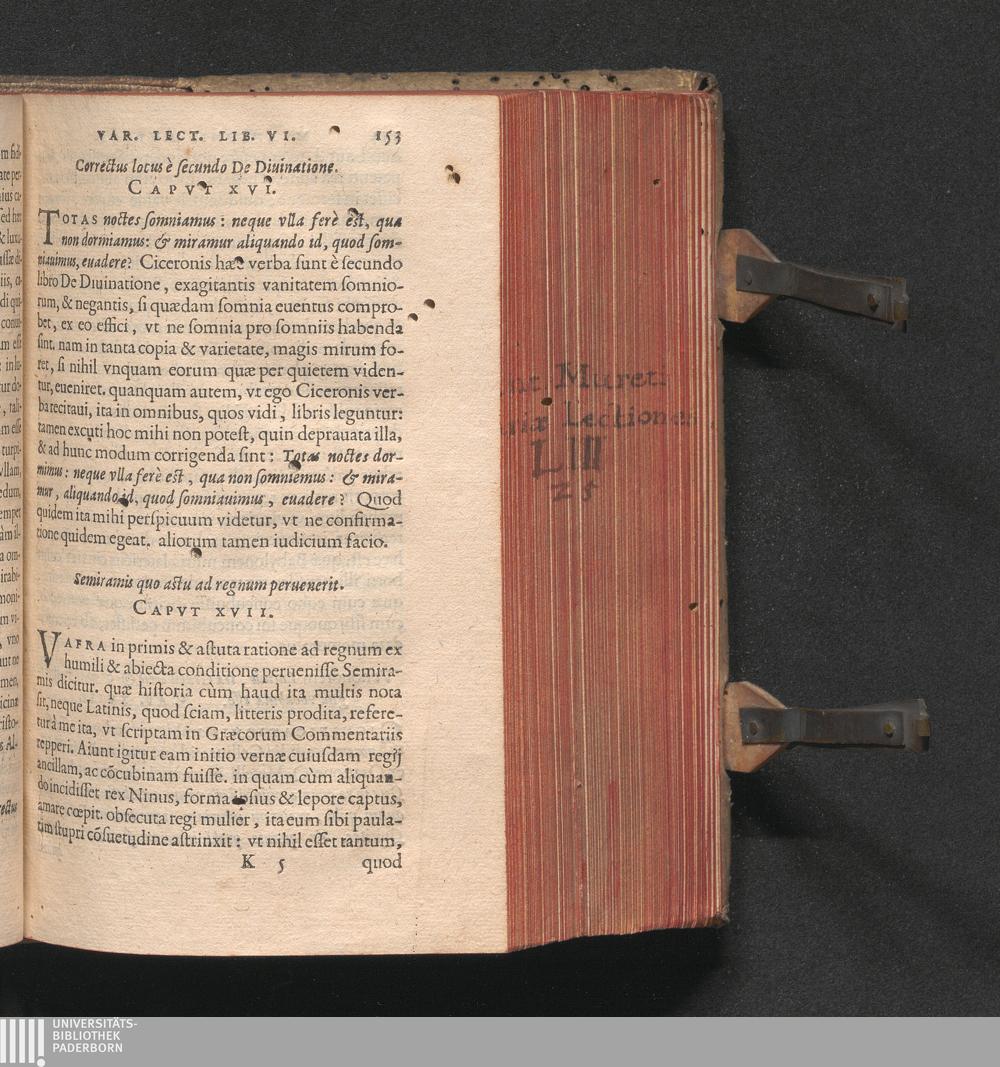 VAR. LECT. LIB. VI. 153
Correctus locus è secundo De Diuinatione.
CAPVT XVI.
TOTAS noctes somniamus : neque vlla ferè est, qua
non dormiamus: & miramur aliquando id, quod som-
niauimus, euadere? Ciceronis hæc verba sunt è secundo
libro De Diuinatione, exagitantis vanitatem somnio-
rum, & negantis, si quædam somnia euentus compro-
bet, ex eo effici, vt ne somnia pro somniis habenda
sint. nam in tanta copia & varietate, magis mirum fo-
ret, si nihil vnquam eorum quæ per quietem viden-
tur, eueniret. quanquam autem, vt ego Ciceronis ver-
ba recitaui, ita in omnibus, quos vidi, libris leguntur:
tamen excuti hoc mihi non potest, quin deprauata illa,
& ad hunc modum corrigenda sint : Totas noctes dor-
mimus : neque vlla ferè est, qua non somniemus : & mira-
mur, aliquando id, quod somniauimus, euadere? Quod
quidem ita mihi perspicuum videtur, vt ne confirma-
tione quidem egeat. aliorum tamen iudicium facio.
Semiramis quo astu ad regnum peruenerit.
CAPVT XVII.
VAFRA in primis & astuta ratione ad regnum ex
humili & abiecta conditione peruenisse Semira-
mis dicitur. quæ historia cùm haud ita multis nota
sit, neque Latinis, quod sciam, litteris prodita, refere-
tur à me ita, vt scriptam in Græcorum Commentariis
repperi. Aiunt igitur eam initio vernæ cuiusdam regij
ancillam, ac cōcubinam fuisse. in quam cùm aliquan-
do incidisset rex Ninus, forma ipsius & lepore captus,
amare cœpit. obsecuta regi mulier, ita eum sibi paula-
tim stupri cōsuetudine astrinxit : vt nihil esset tantum,
K 5 quod
Mureti
Lectiones
LIII
25
UNIVERSITÄTS-
BIBLIOTHEK
PADERBORN